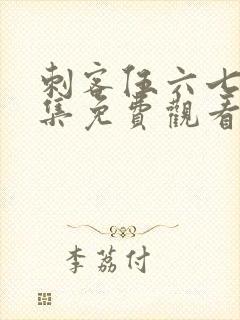 刺客伍六七
集免費觀看
李荔付